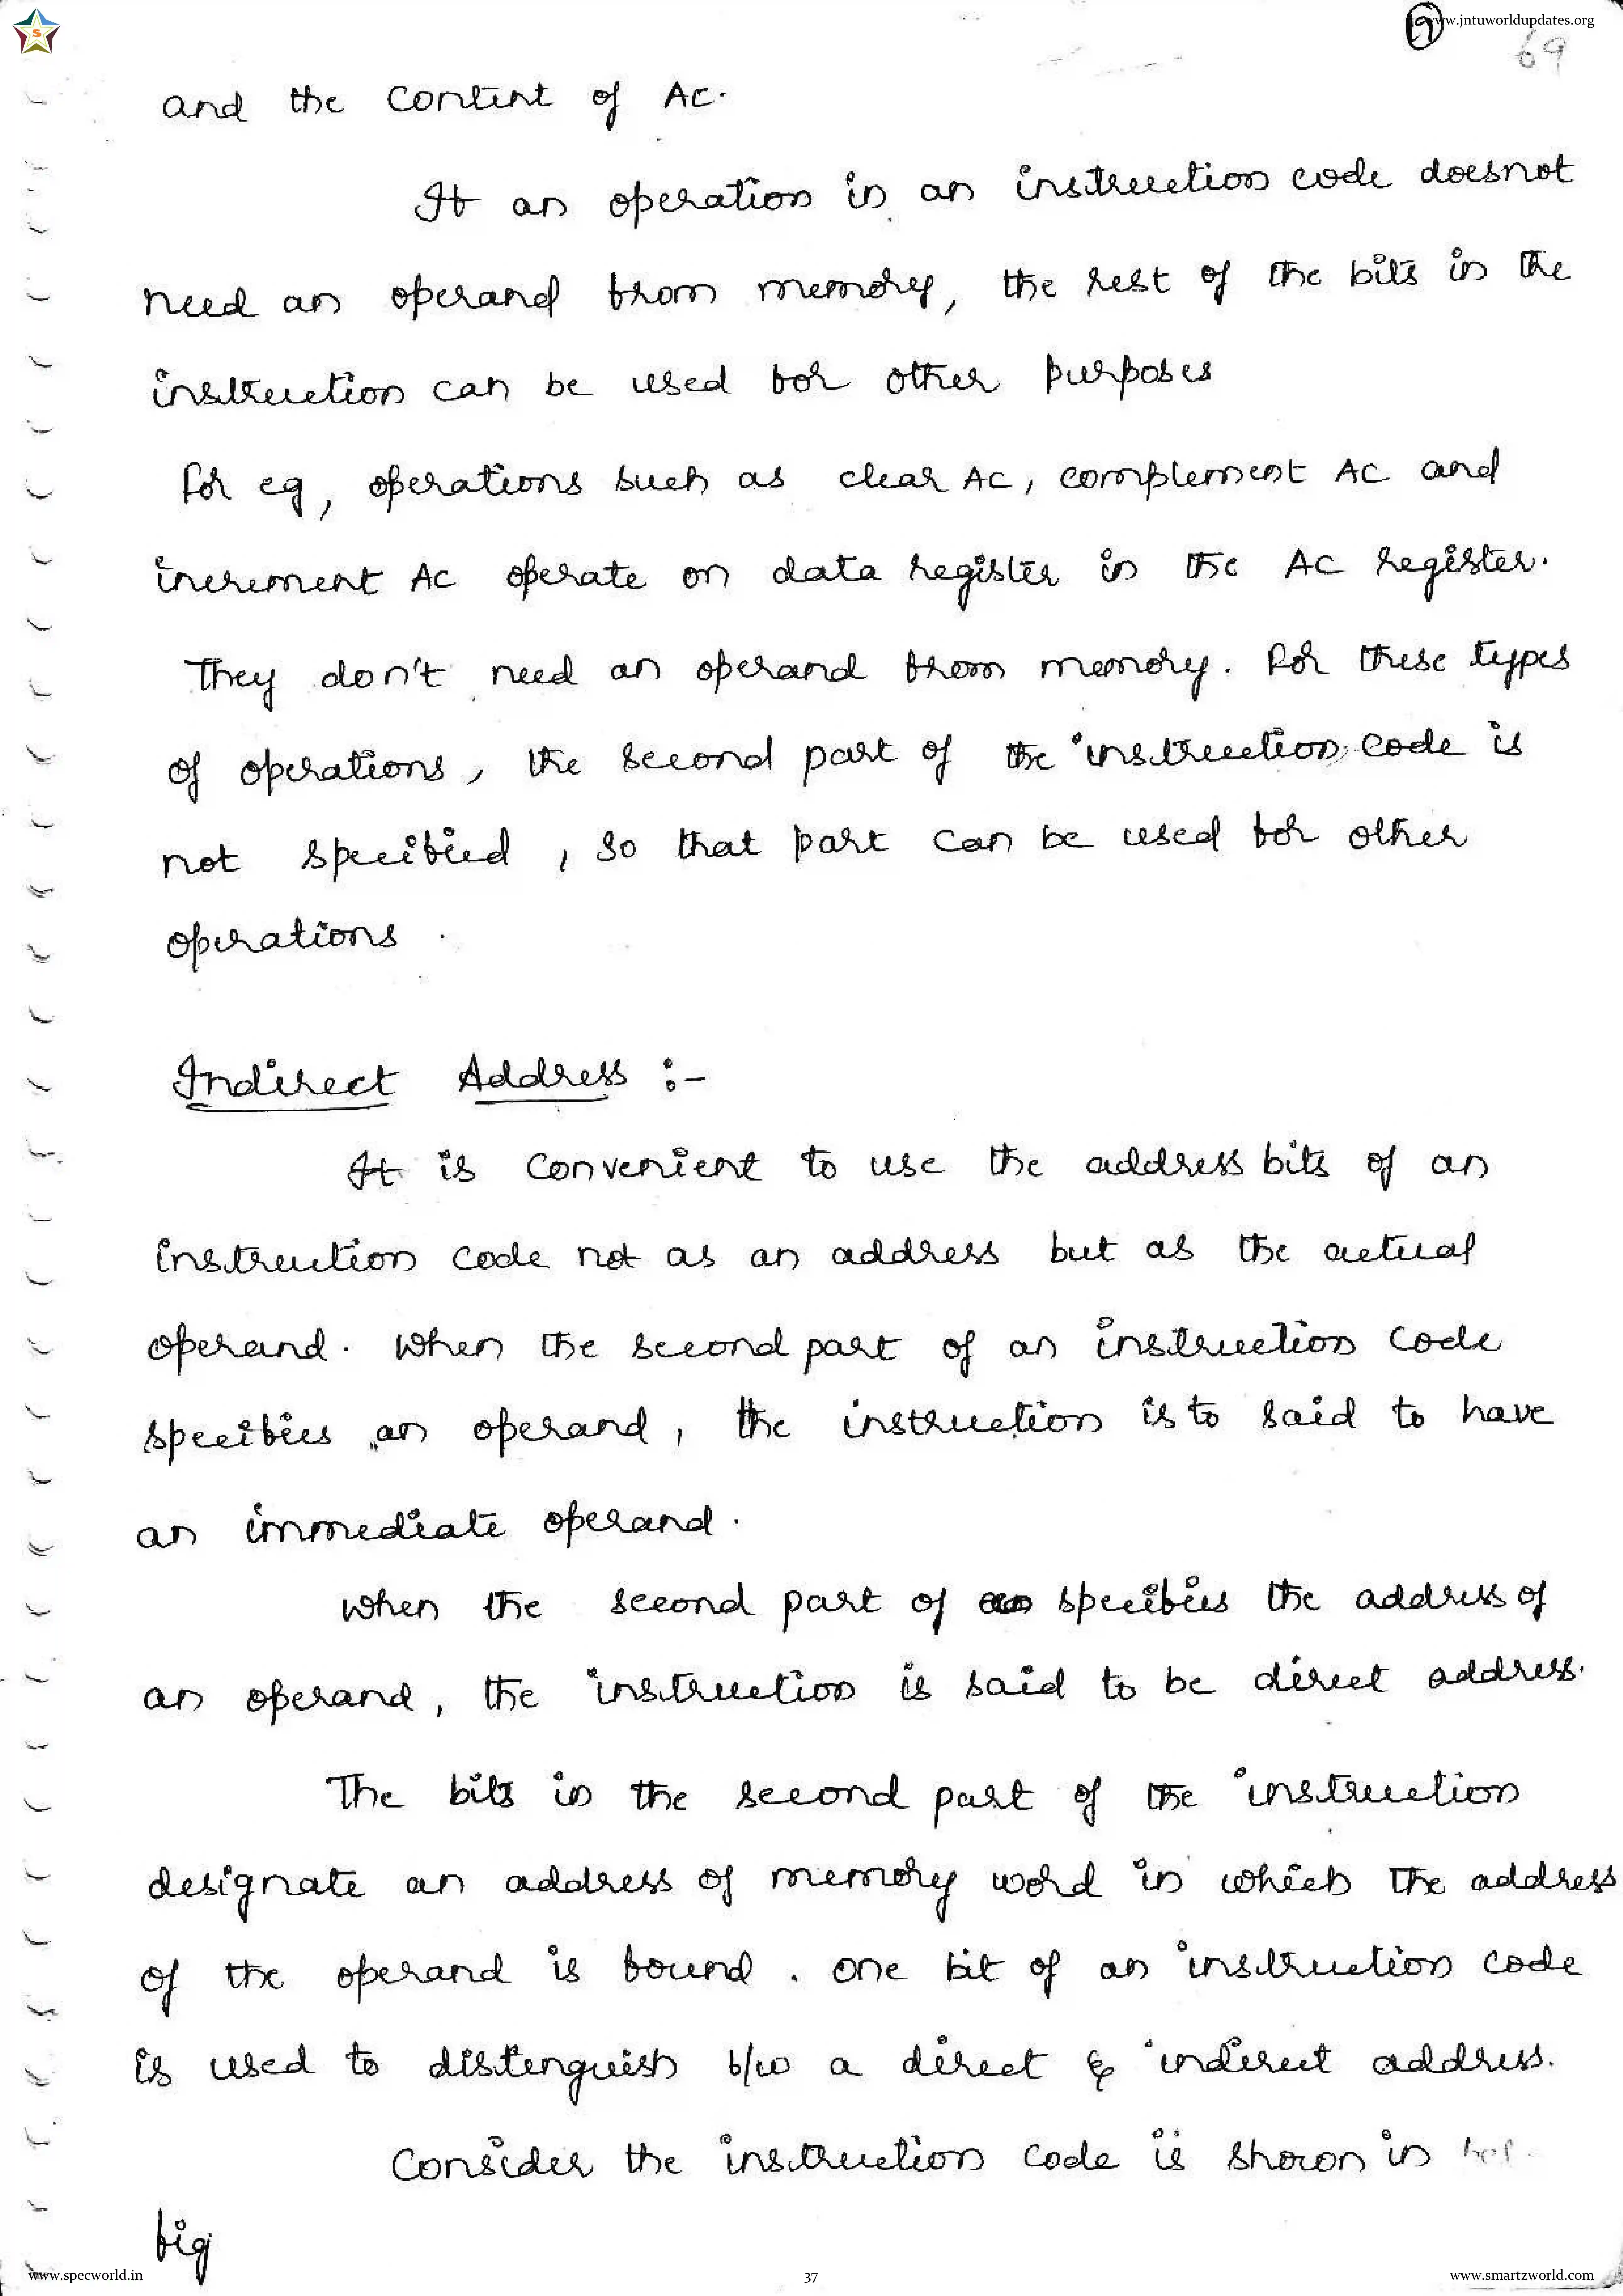 www.jntuworldupdates.org
69
and the content of AC.
If an operation in an instruction code doesnot
need an operand from memory, the rest of the bits in the
instruction can be used for other purposes
For eg, operations such as clear AC, complement AC and
increment AC operate on data register in the AC register.
They don't need an operand from memory. For these types
of operations, the second part of the instruction code is
not specified, so that part can be used for other
operations.
Indirect Address :-
It is convenient to use the address bits of an
instruction code not as an address but as the actual
operand. When the second part of an instruction code
specifies an operand, the instruction is to said to have
an immediate operand.
When the second part of specifies the address of
an operand, the instruction is said to be direct address.
The bits in the second part of the instruction
designate an address of memory word in which the address
of the operand is found. One bit of an instruction code
is used to distinguish b/w a direct & indirect address.
Consider the instruction code is shown in
fig
www.specworld.in
37
www.smartzworld.com